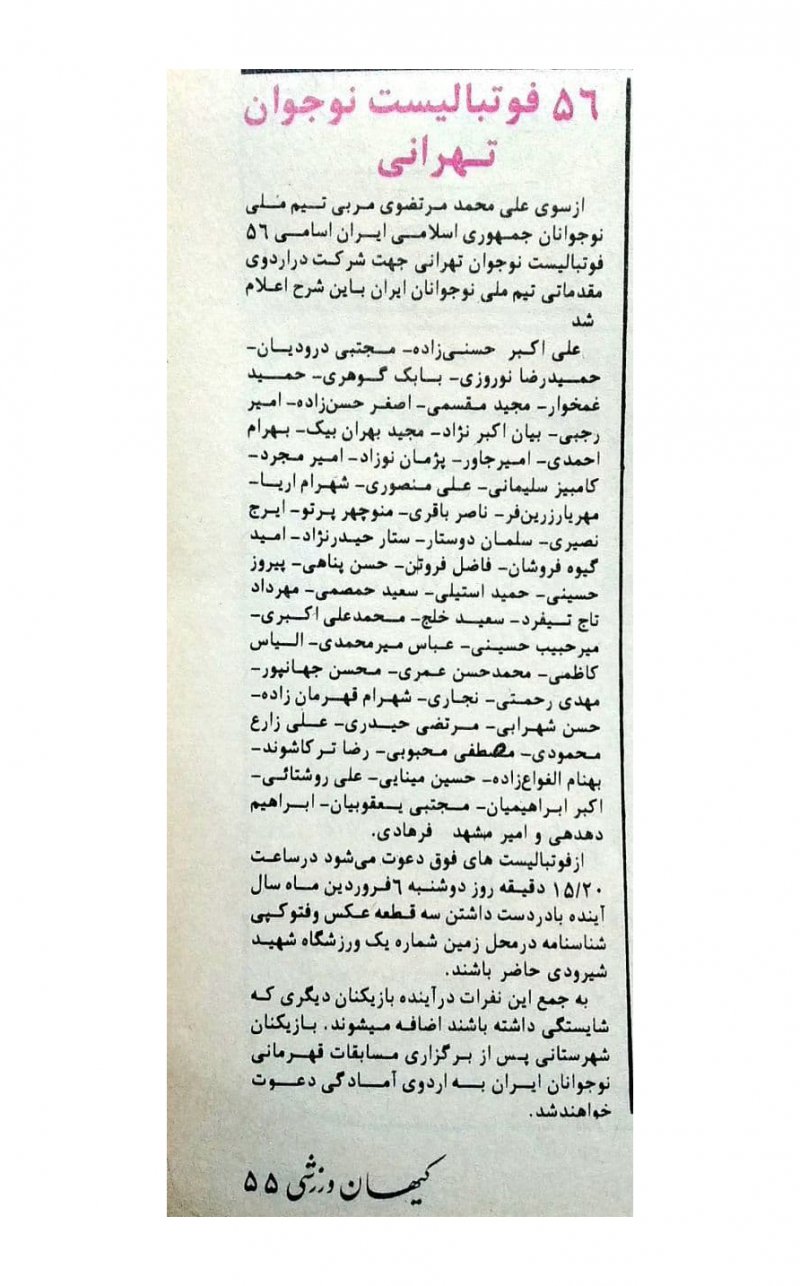 ۵٦ فوتبالیست نوجوان
تهرانی
ازسوی علی محمد مرتضوی مربی تیم ملی
نوجوانان جمهوری اسلامی ایران اسامی ۵٦
فوتبالیست نوجوان تهرانی جهت شرکت دراردوی
مقدماتی تیم ملی نوجوانان ایران باین شرح اعلام
شد
علی اکبر حسنی‌زاده– مجتبی درودیان–
حمیدرضا نوروزی– بابک گوهری– حمید
غمخوار– مجید مقسمی– اصغر حسن‌زاده– امیر
رجبی– بیان اکبر نژاد– مجید بهران بیک– بهرام
احمدی– امیرجاور– پژمان نوزاد– امیر مجرد–
کامبیز سلیمانی– علی منصوری– شهرام اریا–
مهریارزرین‌فر– ناصر باقری– منوچهر پرتو– ایرج
نصیری– سلمان دوستار– ستار حیدرنژاد– امید
گیوه فروشان– فاضل فروتن– حسن پناهی– پیروز
حسینی– حمید استیلی– سعید حمصمی– مهرداد
تاج تیفرد– سعید خلج– محمدعلی اکبری–
میرحبیب حسینی– عباس میرمحمدی– الیاس
کاظمی– محمدحسن عمری– محسن جهانپور–
مهدی رحمتی– نجاری– شهرام قهرمان زاده–
حسن شهرابی– مرتضی حیدری– علی زارع
محمودی– مصطفی محبوبی– رضا ترکاشوند–
بهنام الفواع‌زاده– حسین مینایی– علی روشتائی–
اکبر ابراهیمیان– مجتبی یعقوبیان– ابراهیم
دهدهی و امیر مشهد فرهادی.
ازفوتبالیست های فوق دعوت می‌شود درساعت
۱۵/۲۰ دقیقه روز دوشنبه ٦فروردین ماه سال
آینده بادردست داشتن سه قطعه عکس وفتوکپی
شناسنامه درمحل زمین شماره یک ورزشگاه شهید
شیرودی حاضر باشند.
به جمع این نفرات درآینده بازیکنان دیگری که
شایستگی داشته باشند اضافه میشوند. بازیکنان
شهرستانی پس از برگزاری مسابقات قهرمانی
نوجوانان ایران به اردوی آمادگی دعوت
خواهندشد.
کیهان ورزشی ۵۵